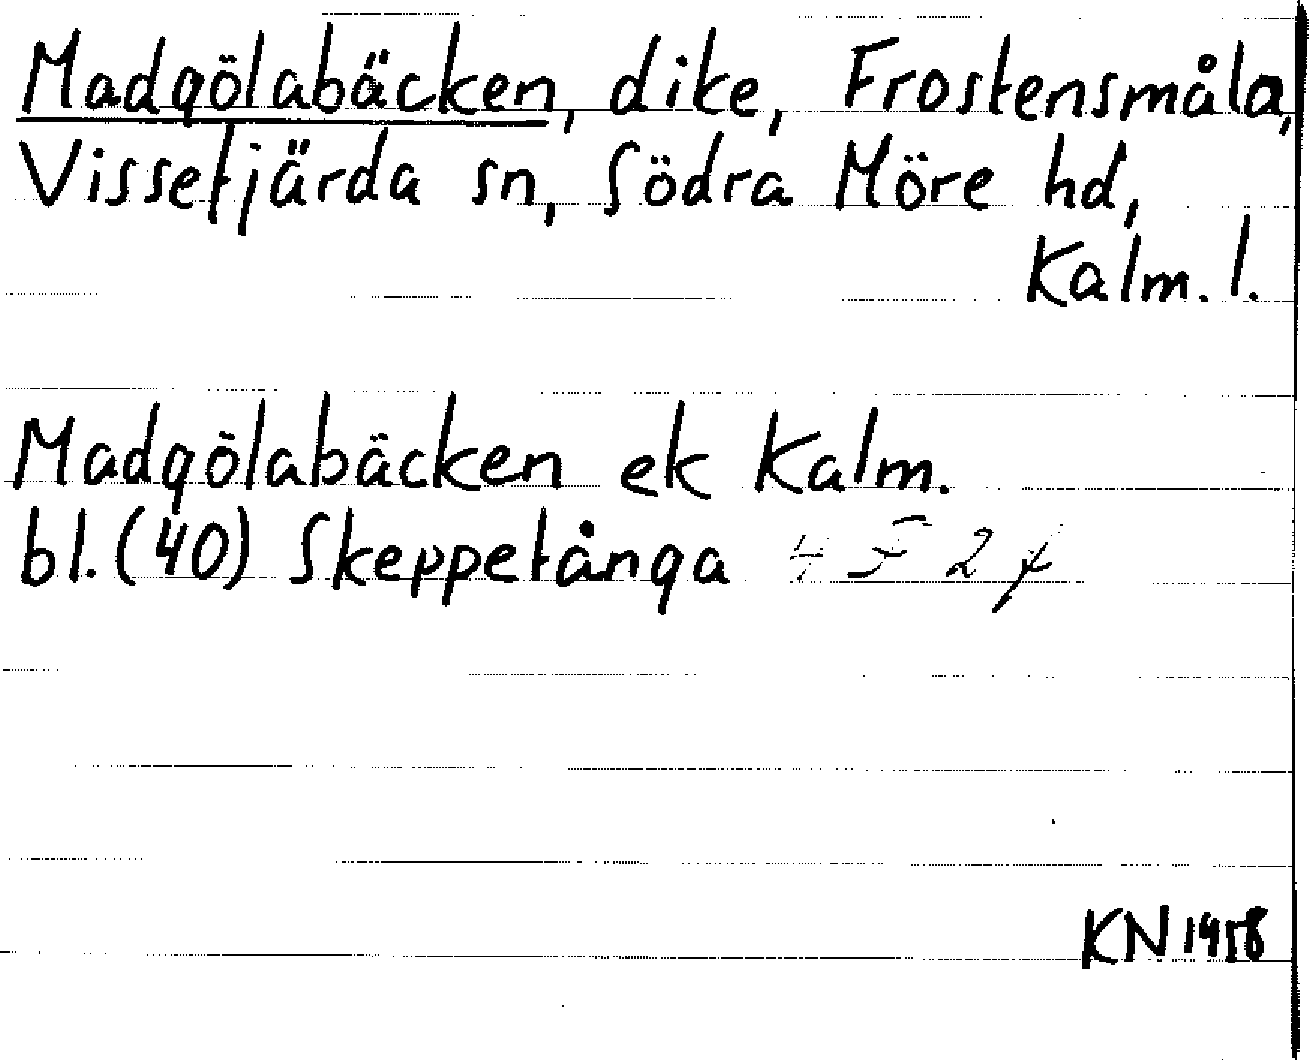 Madgölabäcken, dike, Frostensmåla,
Vissefjärda sn, Södra Möre hd,
Kalm. l.
Madgölabäcken ek Kalm.
bl. (40) Skeppetånga 4 F 2 f
KN 1458